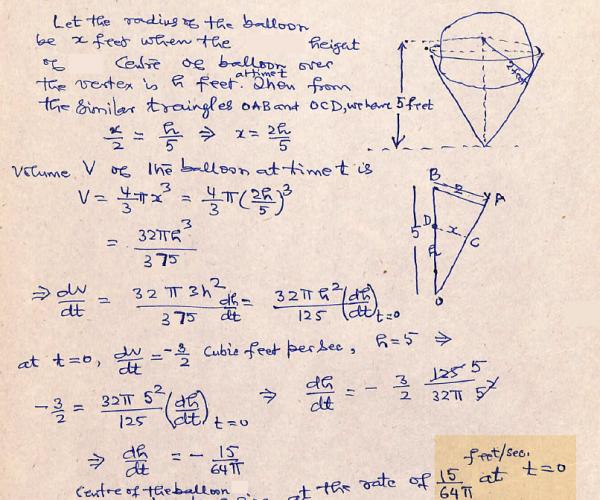 Let the radius of the balloon
be x feet when the height
of Centre of balloon over
the vertex is h feet at time t. Then from
the similar traingles OAB and OCD, we have
x/2 = h/5 ⇒ x = 2h/5
5 feet
2 feet
Volume V of the balloon at time t is
V = 4/3 πx³ = 4/3 π(2h/5)³
= 32πh³/375
B
2
A
D
x
C
5
h
O
⇒ dv/dt = 32π3h²/375 dh/dt = 32πh²/125 (dh/dt)t=0
at t=0, dv/dt = -3/2 Cubic feet per sec, h=5 ⇒
-3/2 = 32π 5²/125 (dh/dt)t=0 ⇒ dh/dt = - 3/2 125 5/32π 5²
⇒ dh/dt = - 15/64π
feet/sec.
Centre of the balloon at the rate of 15/64π at t=0